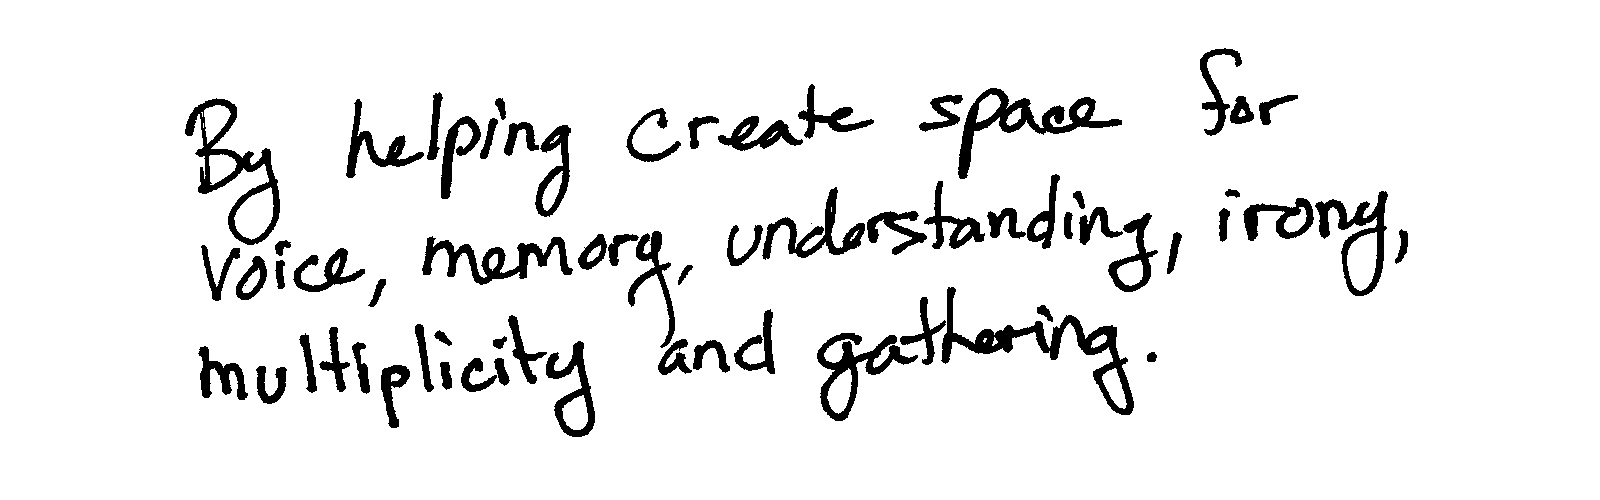 By helping create space for
voice, memory, understanding, irony,
multiplicity and gathering.